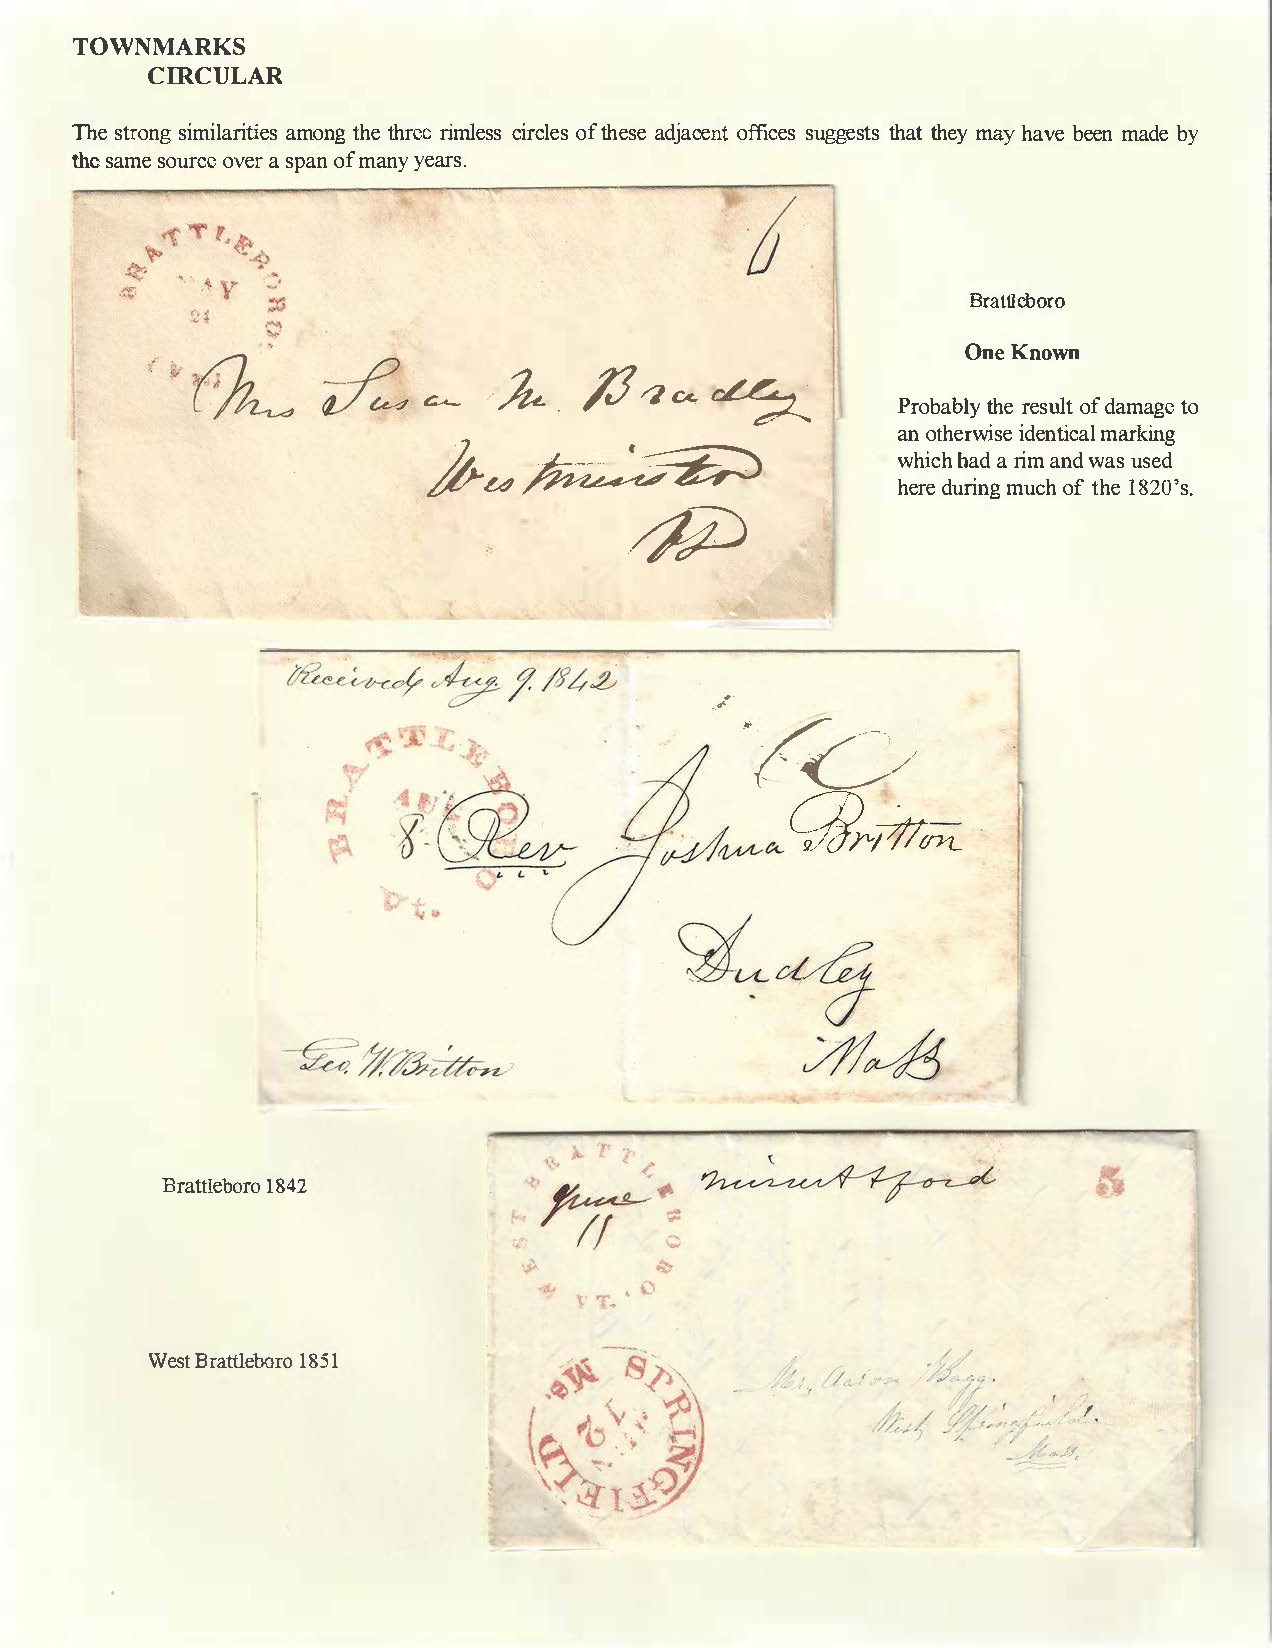 TOWNMARKS
CIRCULAR
The strong similarities among the three rimless circles of these adjacent offices suggests that they may have been made by
the same source over a span of many years.
BRATTLEBORO.
MAY
24
(Vt.)
6
Mrs Susan M. Bradley
Westminster
Vt
Brattleboro
One Known
Probably the result of damage to
an otherwise identical marking
which had a rim and was used
here during much of the 1820's.
Received Aug. 9. 1842
BRATTLEBORO
AUG
8
Vt.
Rev Joshua Britton
Dudley
Mass
Geo. W. Britton
Brattleboro 1842
WEST BRATTLEBORO, VT.
June
11
5
West Brattleboro 1851
SPRINGFIELD Ms.
12
Mr. Aaron Bagg.
West Springfield.
Mass.